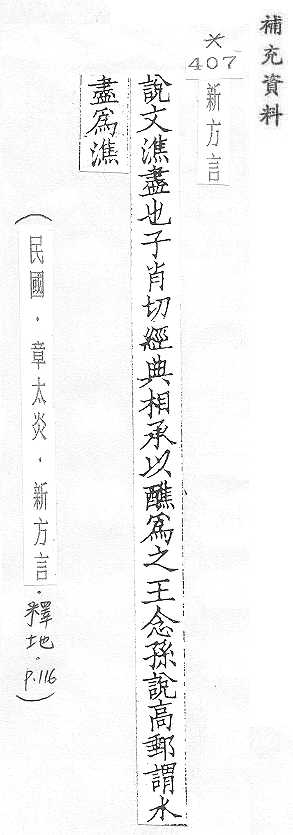 補充資料
*
407
新方言
說文潐盡也子肖切經典相承以醮爲之王念孫說高郵謂水
盡爲潐
(民國.章太炎.新方言.釋地.P.116)